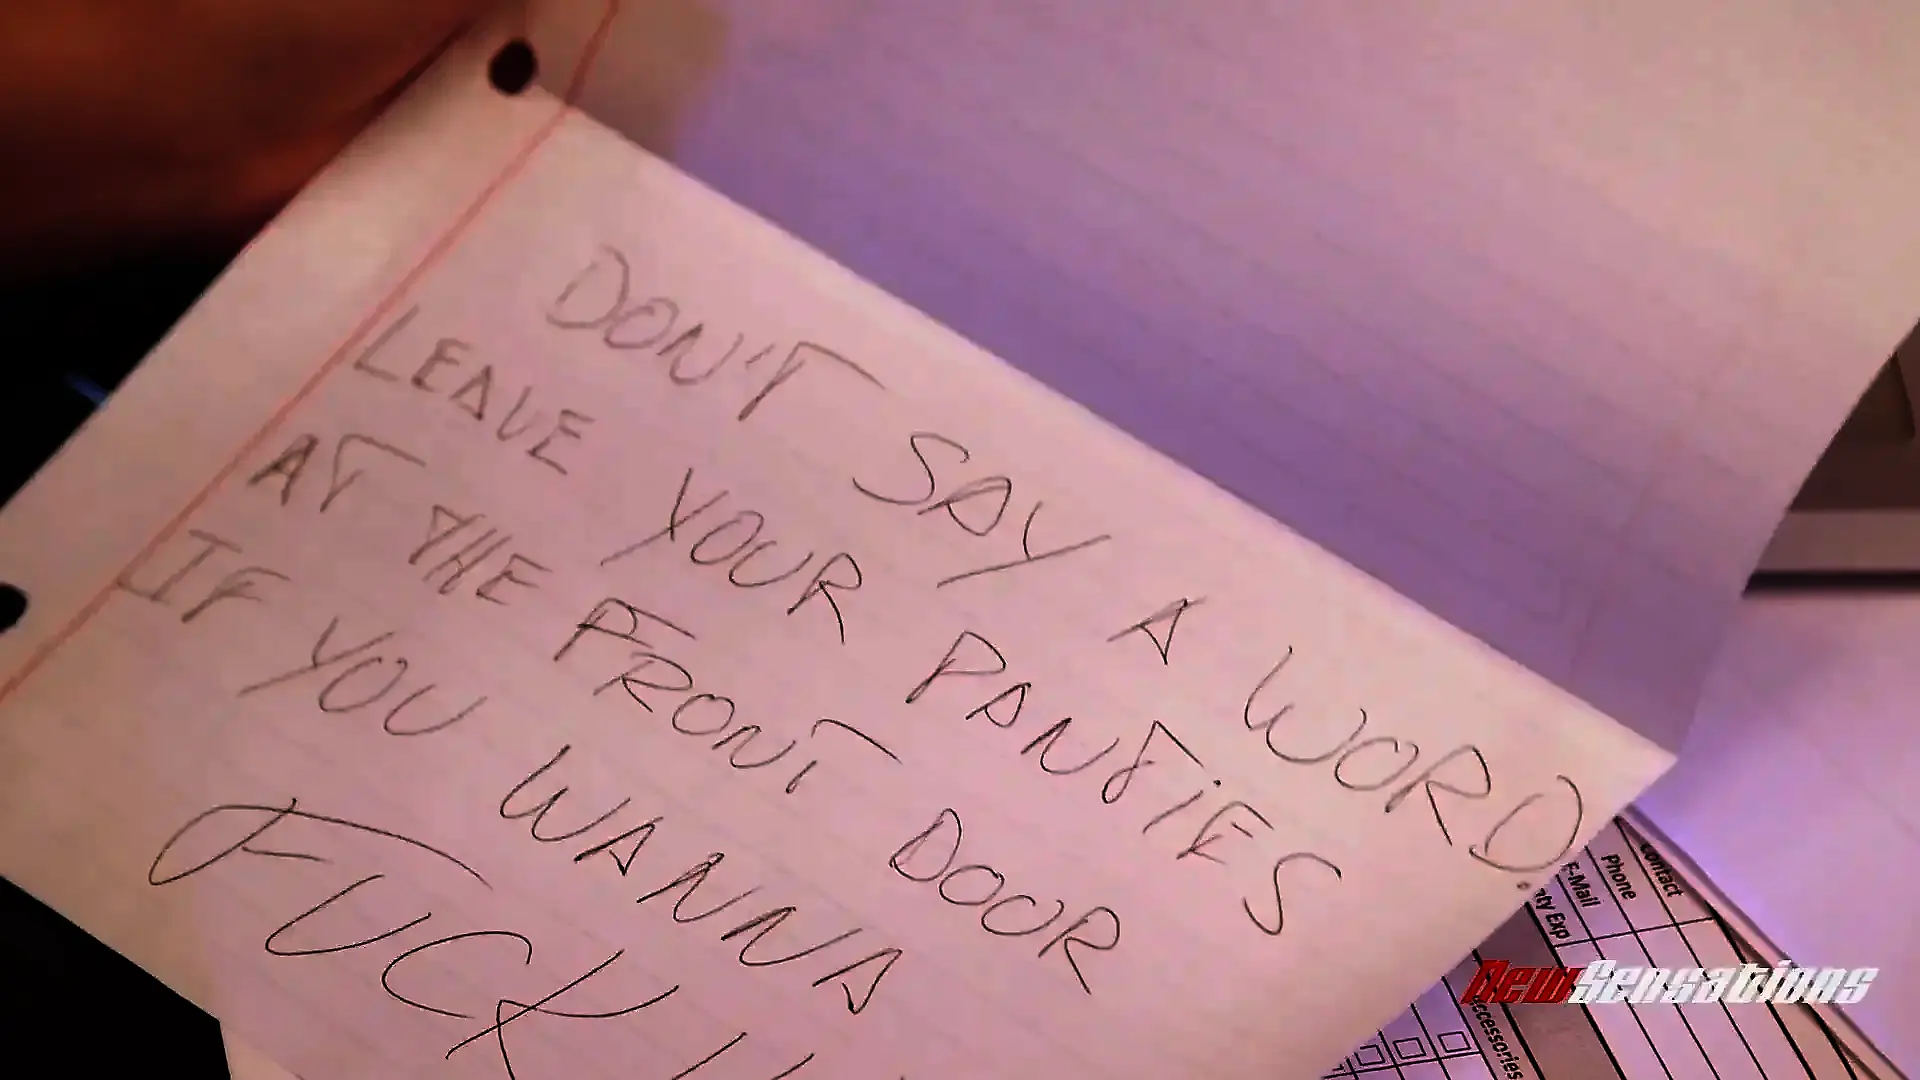 DON'T SAY A WORD.
LEAVE YOUR PANTIES
AT THE FRONT DOOR
IF YOU WANNA
FUCK!!
Contact
Phone
E-Mail
Exp
NewSensations